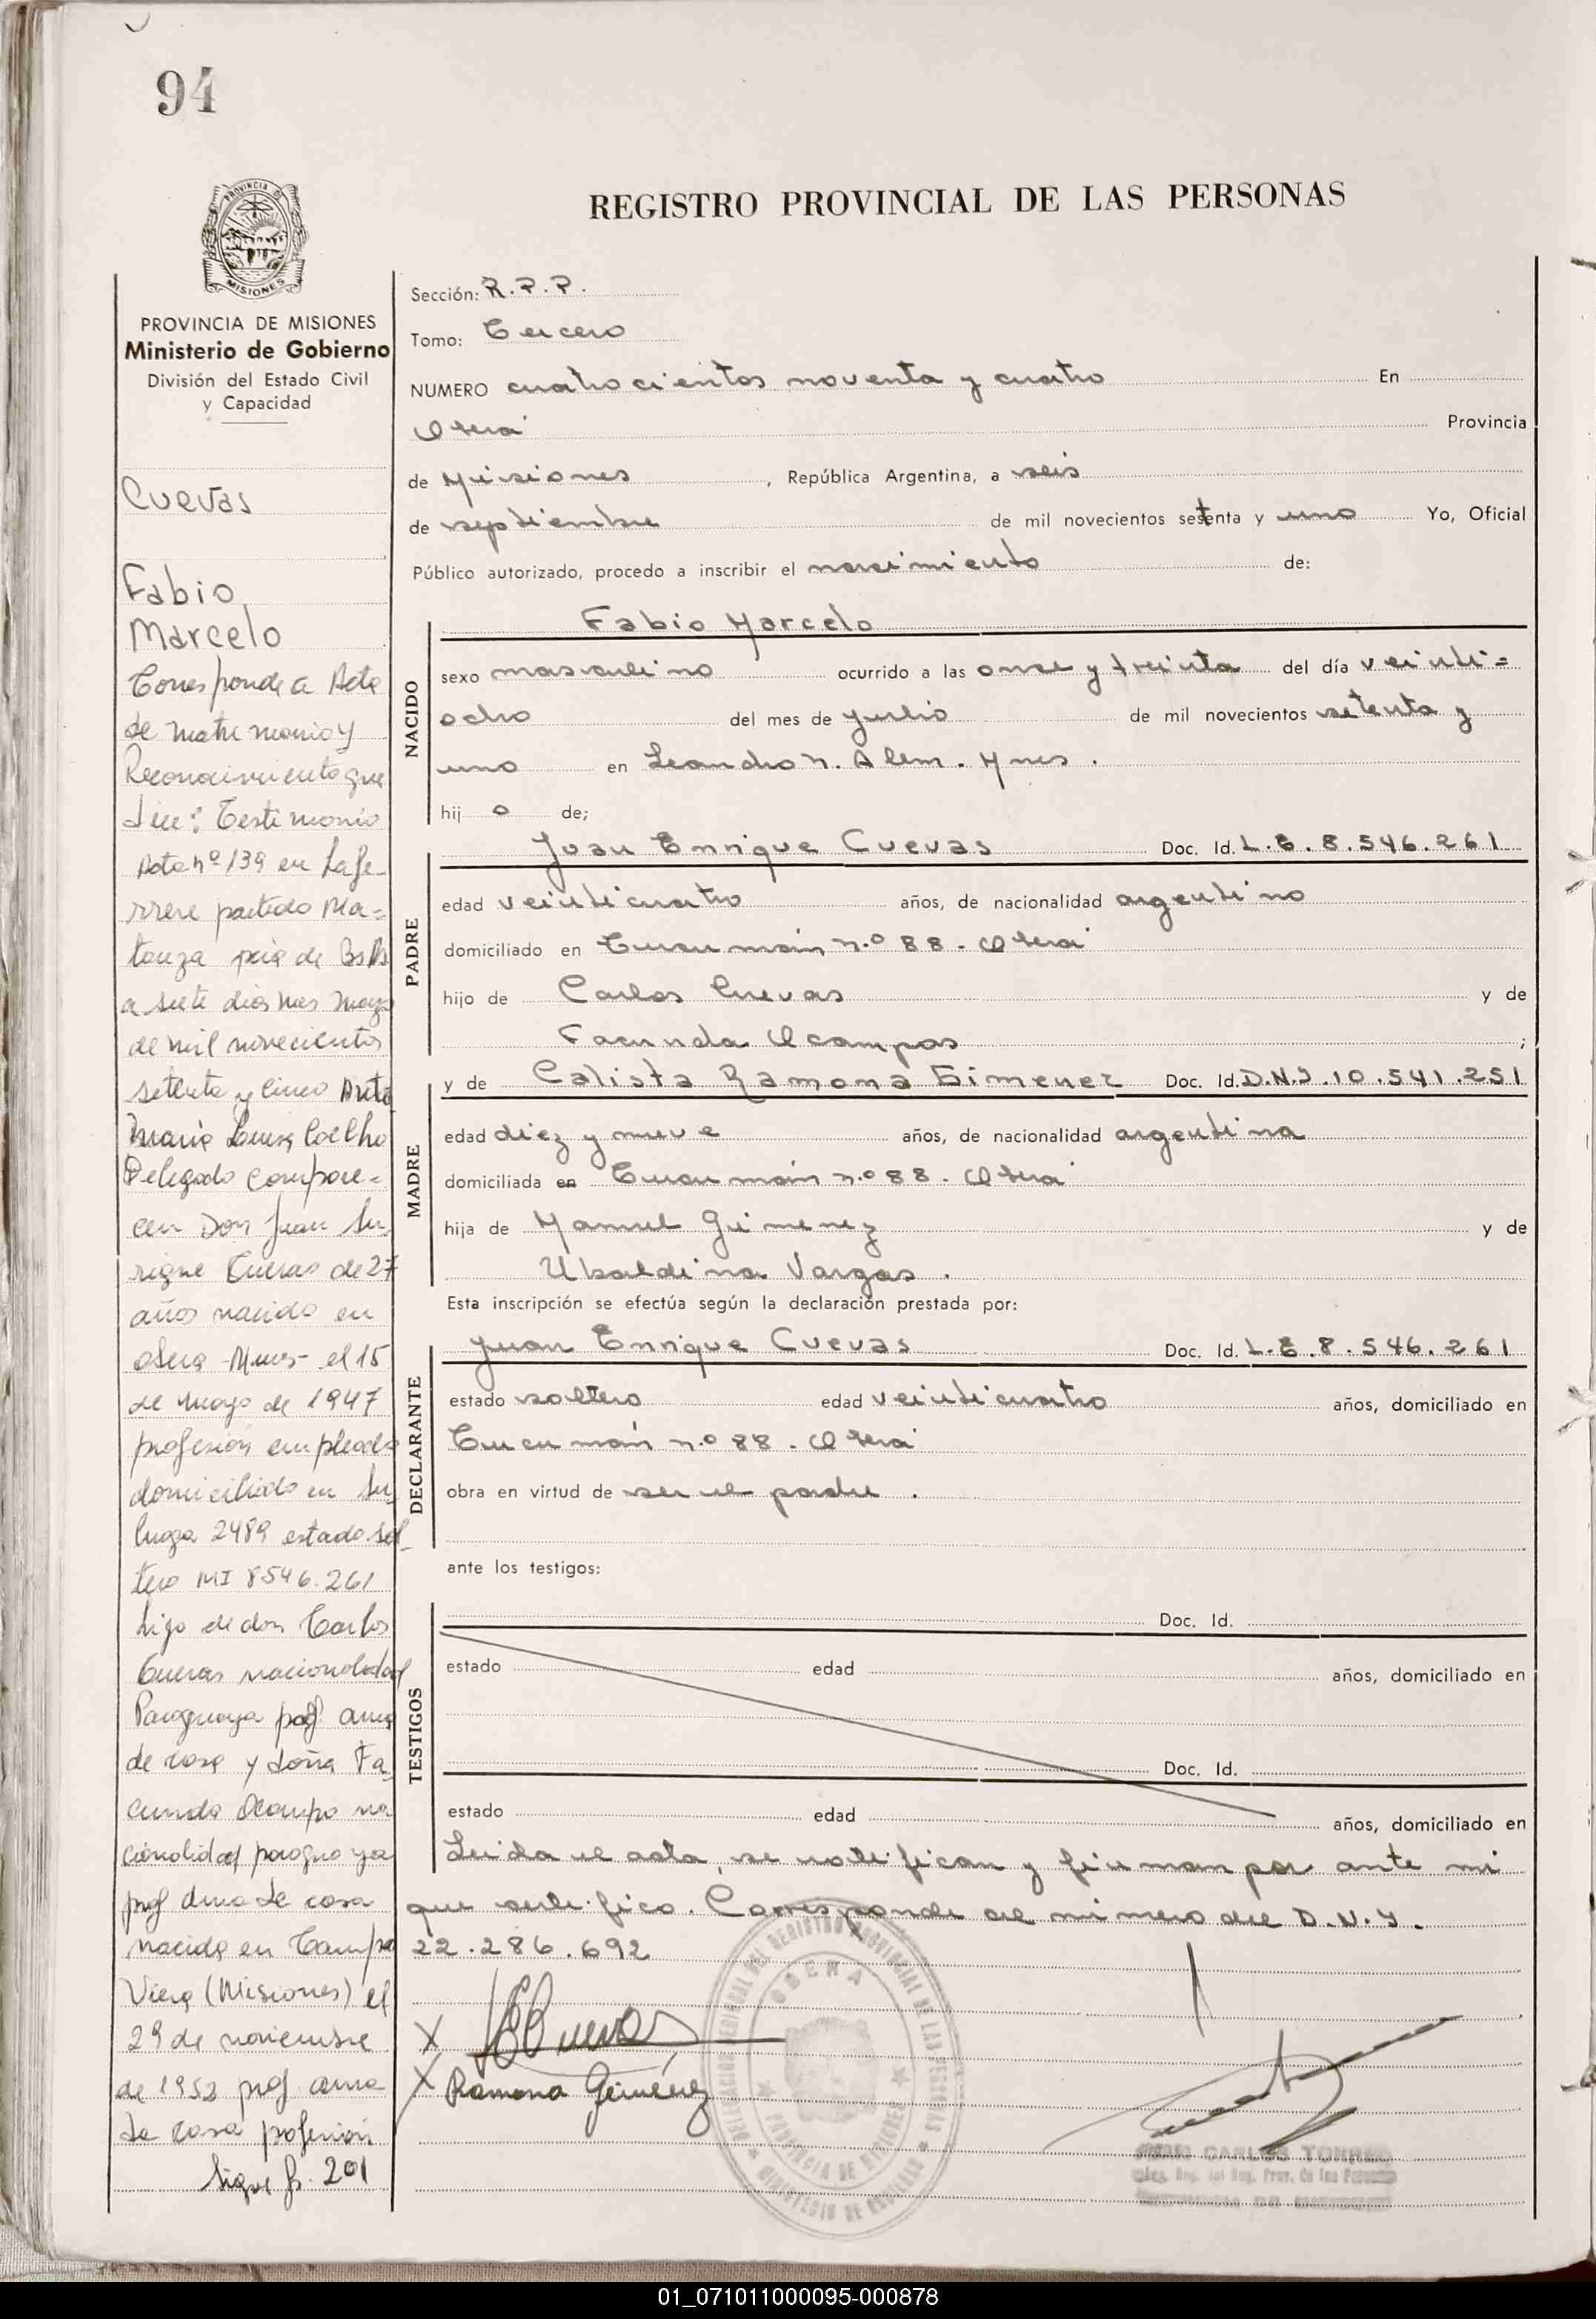 94
PROVINCIA DE
MISIONES
PROVINCIA DE MISIONES
Ministerio de Gobierno
División del Estado Civil
y Capacidad
Cuevas
Fabio
Marcelo
Corresponde a Acta
de Matrimonio y
Reconocimiento que
dice: Testimonio
Acta nº 139 en Lafe-
rrere partido Ma=
tanza pcia de BsAs
a siete dias mes mayo
de mil novecientos
setenta y cinco Ante
Maria Luisa Coelho
Delegado compare=
cen Don Juan En
rique Cuevas de 27
años nacido en
Obera -Mnes- el 15
de mayo de 1947
profesión empleado
domiciliado en
2489 estado sol_
tero MI 8546.261
hijo de don Carlos
Cuevas nacionalidad
Paraguaya prof ama
de casa y doña Fa
cunda Ocampo na
cionalidad paraguaya
prof ama de casa
nacida en Campo
Viera (Misiones) el
29 de noviembre
de 1952 prof. ama
de casa profesión
Sigue fs. 201
REGISTRO PROVINCIAL DE LAS PERSONAS
Sección: R.P.P.
Tomo: Tercero
NUMERO cuatrocientos noventa y cuatro En
Oberá Provincia
de Misiones , República Argentina, a seis
de septiembre de mil novecientos setenta y uno Yo, Oficial
Público autorizado, procedo a inscribir el nacimiento de:
NACIDO
Fabio Marcelo
sexo masculino ocurrido a las once y treinta del día veinti=
ocho del mes de julio de mil novecientos setenta y
uno en Leandro N. Alem. Mnes.
hij o de;
PADRE
Juan Enrique Cuevas Doc. Id. L.E. 8.546.261
edad veinticuatro años, de nacionalidad argentino
domiciliado en Tucumán n.º 88 - Oberá
hijo de Carlos Cuevas y de
Facunda Ocampos ;
MADRE
y de Calista Ramona Gimenez Doc. Id. D.N.I. 10.541.251
edad diez y nueve años, de nacionalidad argentina
domiciliada en Tucumán n.º 88. Oberá
hija de Manuel Gimenez y de
Ubaldina Vargas.
Esta inscripción se efectúa según la declaración prestada por:
DECLARANTE
Juan Enrique Cuevas Doc. Id. L.E. 8.546.261
estado soltero edad veinticuatro años, domiciliado en
Tucumán n.º 88. Oberá
obra en virtud de ser el padre.
ante los testigos:
TESTIGOS
Doc. Id.
estado edad años, domiciliado en
Doc. Id.
estado edad años, domiciliado en
Leida el acta, se notifican y firman por ante mi
que certifico. Corresponde al número del D.N.I.
22.286.692
X JECuevas
X Ramona Giménez
DELEGACION REGIONAL DEL REGISTRO PROVINCIAL DE LAS PERSONAS
OBERA
PROVINCIA DE MISIONES
MINISTERIO DE GOBIERNO
CARLOS TORRES
Reg. del Reg. Prov. de las Personas
PROVINCIA DE MISIONES
01_071011000095-000878